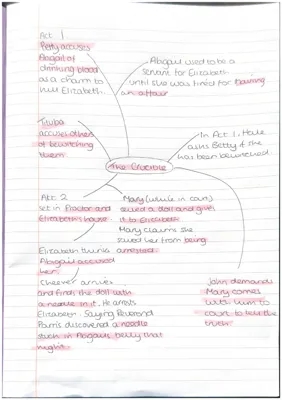 Act 1
Betty accuses
Abigail of
drinking blood
as a charm to
kill Elizabeth.
Abigail used to be a
servant for Elizabeth
until she was fired for having
an affair
Tituba
accuses others
of bewitching
them
In Act 1, Hale
asks Betty if she
has been bewitched
The Crucible
Act 2
set in Proctor and
Elizabeth's house
Mary (while in court)
sewed a doll and gives
it to Elizabeth
Mary claims she
saved her from being
arrested.
Elizabeth thinks
Abigail accused
her.
Cheever arrives
and finds the doll with
a needle in it. He arrests
Elizabeth. Saying Reverend
Parris discovered a needle
stuck in Abigail's belly that
night.
John demands
Mary comes
with him to
court to tell the
truth.